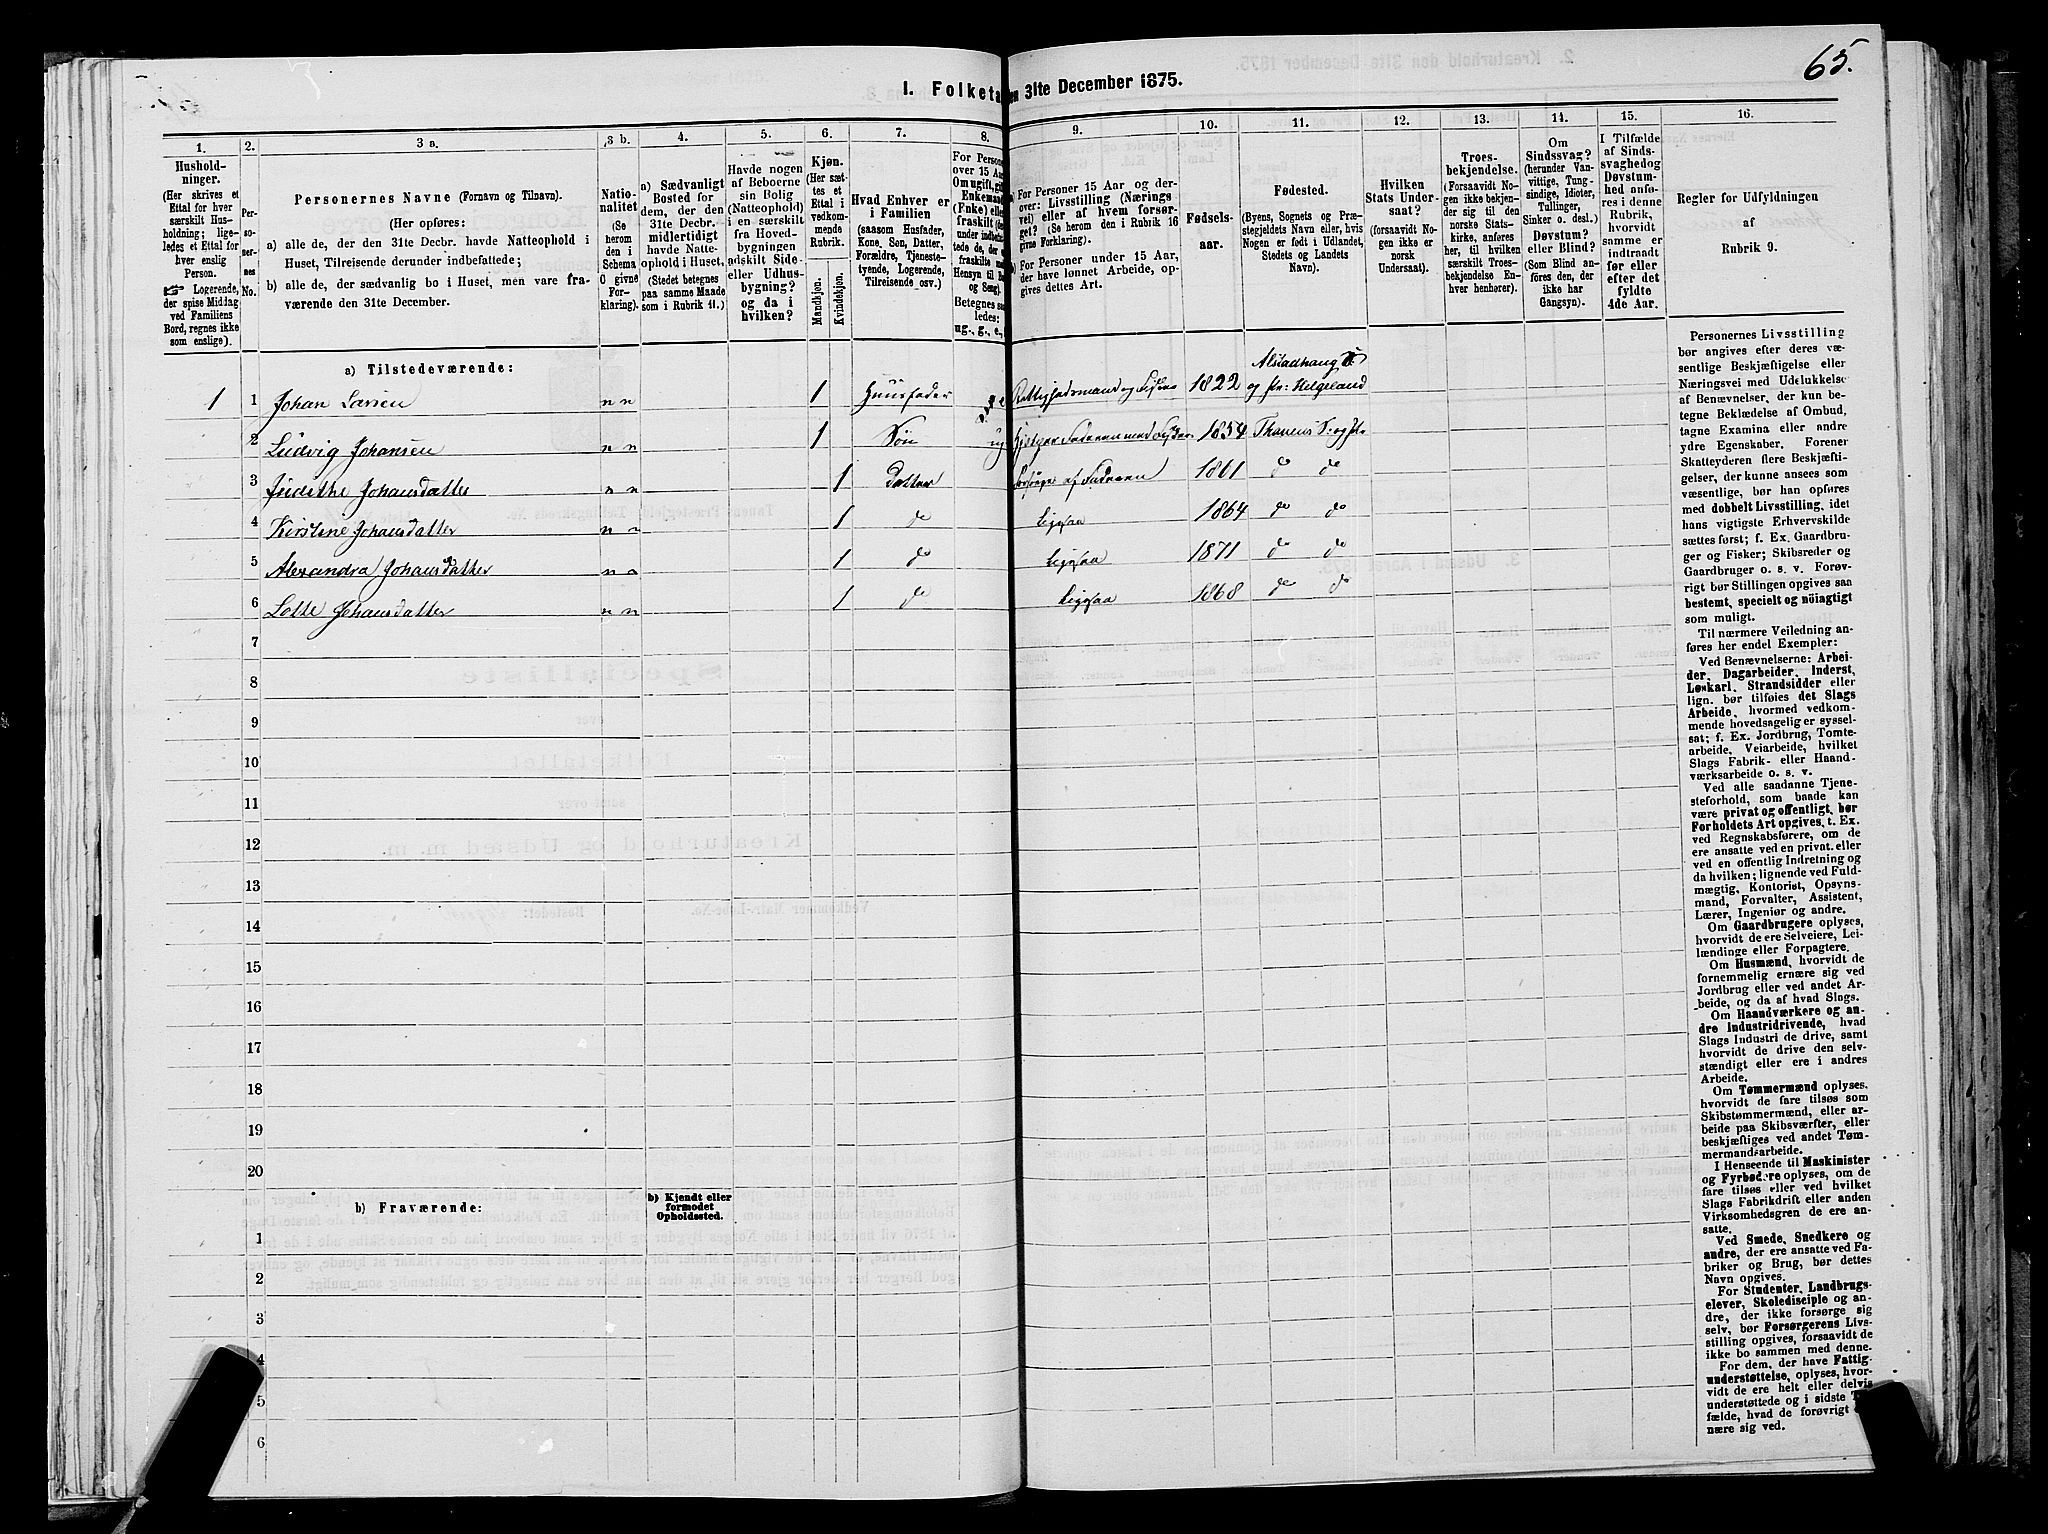 65.
I. Folketa
en 31te December 1875.
1. 2. 3 a. 3 b. 4. 5. 6. 7. 8. 9. 10. 11. 12. 13. 14. 15. 16.
Hushold-
ninger.
(Her skrives et
Ettal for hver
særskilt Hus-
holdning; lige-
ledes et Ettal for
hver enslig
Person.
☞ Logerende,
der spise Middag
ved Familiens
Bord, regnes ikke
som enslige).
Per-
so-
ner-
nes
No.
Personernes Navne (Fornavn og Tilnavn).
(Her opføres:
a) alle de, der den 31te Decbr. havde Natteophold i
Huset, Tilreisende derunder indbefattede;
b) alle de, der sædvanlig bo i Huset, men vare fra-
værende den 31te December.
Natio-
nalitet
(Se
herom
den i
Schema
O givne
For-
klaring).
a) Sædvanligt
Bosted for
dem, der den
31te Decbr.
midlertidigt
havde Natte-
ophold i Huset.
(Stedet betegnes
paa samme Maade
som i Rubrik 11.)
Havde nogen
af Beboerne
sin Bolig
(Natteophold)
i en særskilt
fra Hoved-
bygningen
adskilt Side-
eller Udhus-
bygning?
og da i
hvilken?
Kjøn.
(Her sæt-
tes et
Ettal i
vedkom-
mende
Rubrik.
Mandkjøn.
Kvindekjøn.
Hvad Enhver er
i Familien
(saasom Husfader,
Kone, Søn, Datter,
Forældre, Tjeneste-
tyende, Logerende,
Tilreisende osv.)
For Person
over 15 Aar
Om ugift, gi
Enkemand
(Enke) elle
fraskilt
Betegnes saa
ledes:
ug., g., e.,
a) For Personer 15 Aar og der-
over: Livsstilling (Nærings
vei) eller af hvem forsør-
get? (Se herom den i Rubrik 16
givne Forklaring).
b) For Personer under 15 Aar,
der have lønnet Arbeide, op-
gives dettes Art.
Fødsels-
aar.
Fødested.
(Byens, Sognets og Præ-
stegjeldets Navn eller, hvis
Nogen er født i Udlandet,
Stedets og Landets
Navn).
Hvilken
Stats Under-
saat?
(forsaavidt No-
gen ikke er
norsk
Undersaat).
Troes-
bekjendelse.
(Forsaavidt No-
gen ikke bekjen-
der sig til den
norske Stats-
kirke, anføres
her, til hvilken
særskilt Troes-
bekjendelse En-
hver henhører).
Om
Sindssvag?
(herunder Van-
vittige, Tung-
sindige, Idioter,
Tullinger,
Sinker o. desl.)
Døvstum?
eller Blind?
(Som Blind an-
føres den, der
ikke har
Gangsyn).
I Tilfælde
af Sinds-
svaghed og
Døvstum-
hed anfø-
res i denne
Rubrik,
hvorvidt
samme er
indtraadt
før eller
efter det
fyldte
4de Aar.
Regler for Udfyldningen
af
Rubrik 9.
a) Tilstedeværende:
1 1 Johan Larsen n n 1 Huusfader e 1822 Alstadhaug S. og Pr: Helgeland
2 Ludvig Johansen n n 1 Søn ug 1854
3 Judithe Johansdatter n n 1 datter forsørges af Faderen 1861 do do
4 Kirstine Johansdatter n n 1 do ligesaa 1864 do do
5 Alexandra Johansdatter n n 1 do ligesaa 1871 do do
6 Lotte Johansdatter n n 1 do ligesaa 1868 do do
7
8
9
10
11
12
13
14
15
16
17
18
19
20
b) Fraværende:
b) Kjendt eller
formodet
Opholdssted.
1
2
3
4
5
6
Personernes Livsstilling
bør angives efter deres væ-
sentlige Beskjæftigelse eller
Næringsvei med Udelukkelse
af Benævnelser, der kun be-
tegne Beklædelse af Ombud,
tagne Examina eller andre
ydre Egenskaber. Forener
Skatteyderen flere Beskjæfti-
gelser, der kunne ansees som
væsentlige, bør han opføres
med dobbelt Livsstilling, idet
hans vigtigste Erhvervskilde
sættes først; f. Ex. Gaardbru-
ger og Fisker; Skibsreder og
Gaardbruger o. s. v. Forøv-
rigt bør Stillingen opgives saa
bestemt, specielt og nöiagtigt
som muligt.
Til nærmere Veiledning an-
føres her endel Exempler:
Ved Benævnelserne: Arbei-
der, Dagarbeider, Inderst,
Løskarl, Strandsidder eller
lign. bør tilføies det Slags
Arbeide, hvormed vedkom-
mende hovedsagelig er syssel-
sat; f. Ex. Jordbrug, Tomte-
arbeide, Veiarbeide, hvilket
Slags Fabrik- eller Haand-
værksarbeide o. s. v.
Ved alle saadanne Tjene-
steforhold, som baade kan
være privat og offentligt, bør
Forholdets Art opgives, t. Ex.
ved Regnskabsførere, om de
ere ansatte ved en privat eller
ved en offentlig Indretning og
da hvilken; lignende ved Fuld-
mægtig, Kontorist, Opsyns-
mand, Forvalter, Assistent,
Lærer, Ingeniør og andre.
Om Gaardbrugere oplyses,
hvorvidt de ere Selveiere, Lei-
lændinge eller Forpagtere.
Om Husmænd, hvorvidt de
fornemmelig ernære sig ved
Jordbrug eller ved andet Ar-
beide, og da af hvad Slags.
Om Haandværkere og an-
dre Industridrivende, hvad
Slags Industri de drive, samt
hvorvidt de drive den selv-
stændigt eller ere i andres
Arbeide.
Om Tømmermænd oplyses,
hvorvidt de fare tilsøs som
Skibstømmermænd, eller ar-
beide paa Skibsværfter, eller
beskjæftiges ved andet Tøm-
mermandsarbeide.
I Henseende til Maskinister
og Fyrbødere oplyses, om de
fare tilsøs eller ved hvilket
Slags Fabrikdrift eller anden
Virksomhedsgren de ere an-
satte.
Ved Smede, Snedkere og
andre, der ere ansatte ved Fa-
briker og Brug, bør dettes
Navn opgives.
For Studenter, Landbrugs-
elever, Skoledisciple og an-
dre, der ikke forsørge sig
selv, bør Forsørgerens Livs-
stilling opgives, forsaavidt de
ikke bo sammen med denne.
For dem, der have Fattig-
understøttelse, oplyses, hvor-
vidt de ere helt eller delvis
understøttede og i sidste
fælde, hvad de forøvrigt
nære sig ved.